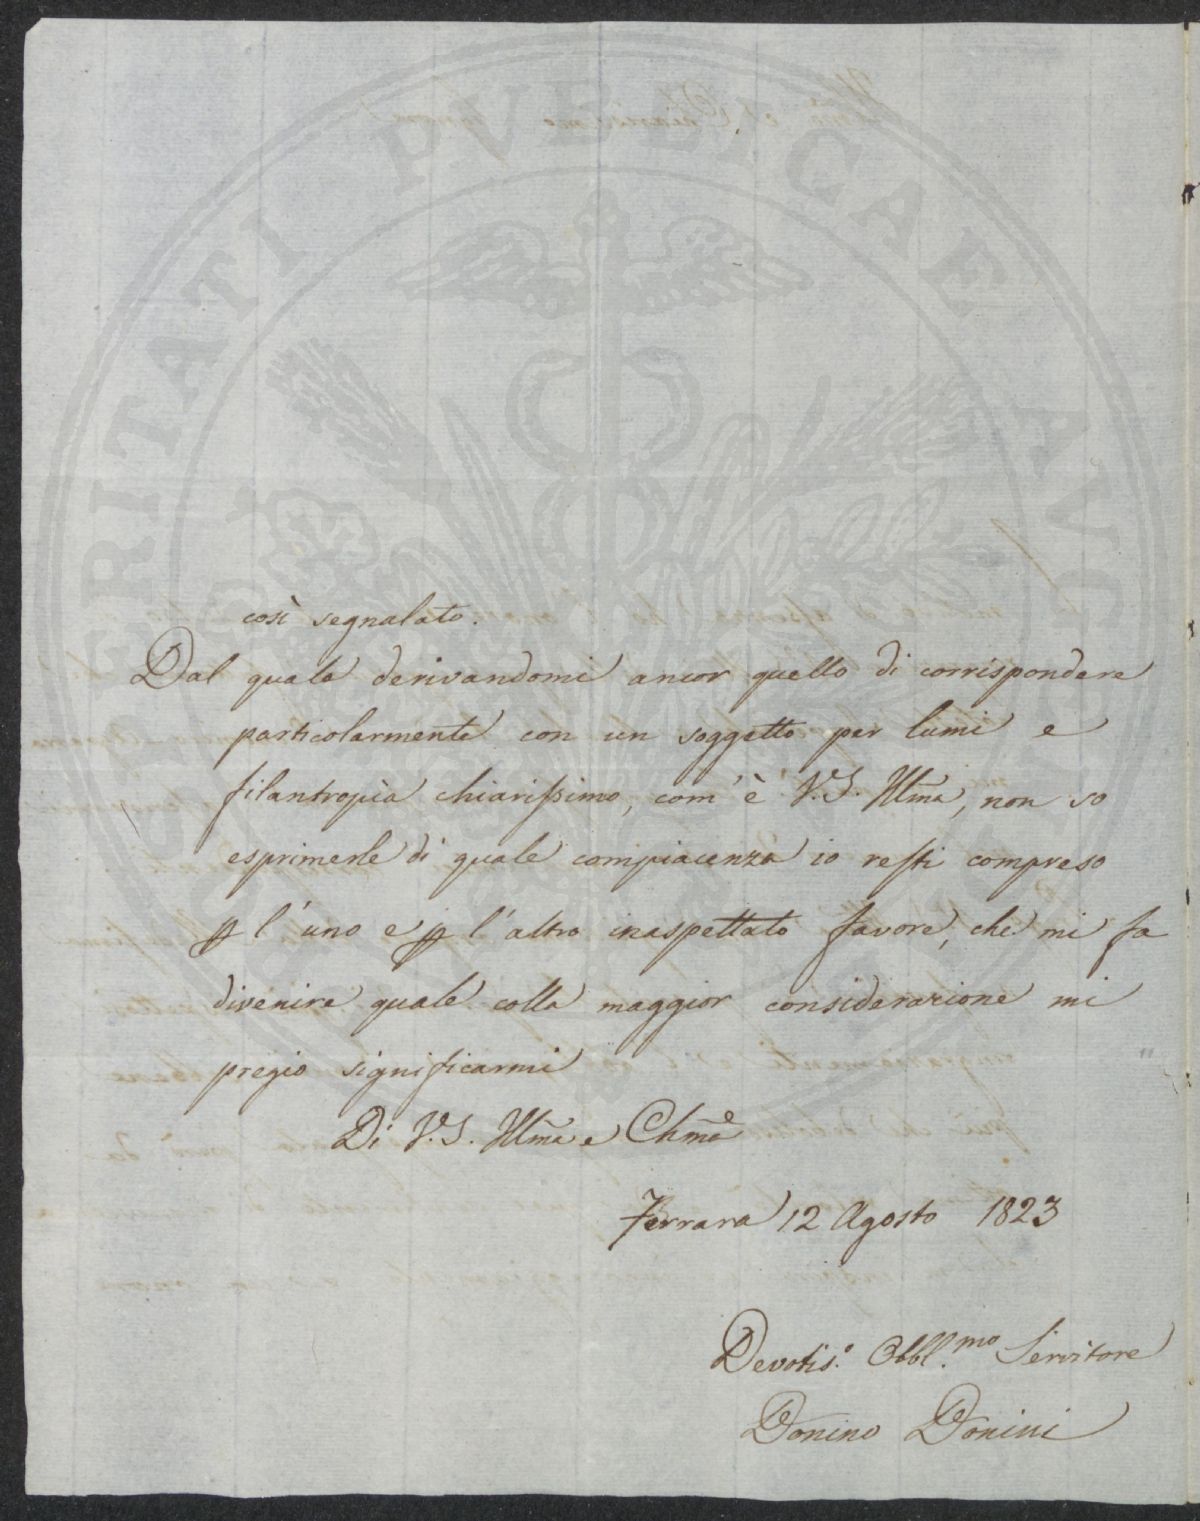 così segnalato.
Dal quale derivandomi ancor quello di corrispondere
particolarmente con un soggetto per lumi e
filantropìa chiarissimo, com'è V.S. Illma, non so
esprimerle di quale compiacenza io resti compreso
ꝑ l'uno e ꝑ l'altro inaspettato favore, che mi fa
divenire quale colla maggior considerazione mi
pregio significarmi
Di V.S. Illma e Chma
Ferrara 12 Agosto 1823
Devotis.º Obbl.mo Servitore
Donino Donini
PVBLICAE